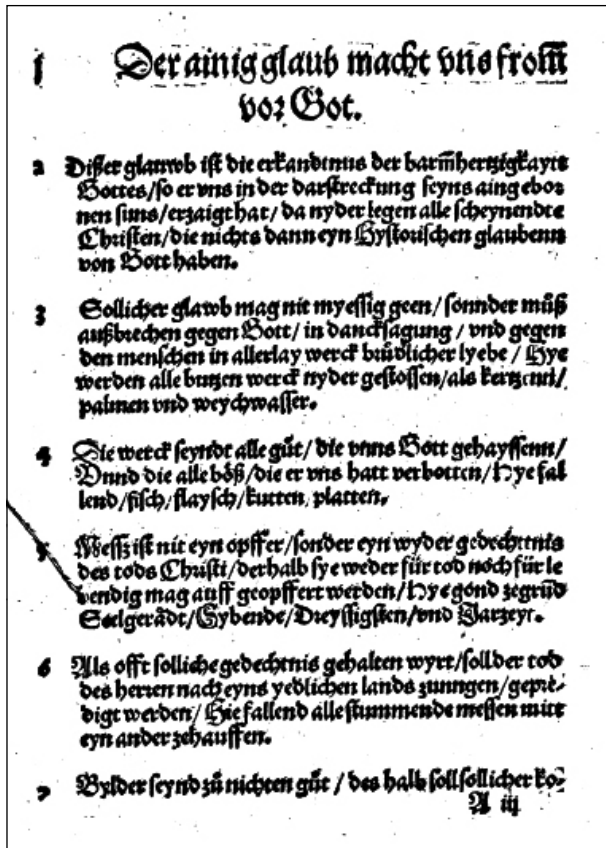 1 Der ainig glaub macht vns from̄
vor Got.
2 Dißer glauwb ist die erkandtnus der barm̄hertzigkayte
Gottes/so er vns in der darstreckung seyns aingebor
nen suns/erzaigt hat/ da nyder legen alle scheynendte
Christen/die nichts dann eyn Hystorischen glaubenn
von Gott haben.
3 Sollicher glawb mag nit myessig geen/ sonnder můß
außbrechen gegen Gott/ in dancksagung / vnd gegen
den menschen in allerlay werck brůdlicher lyebe / Hye
werden alle butzen werck nyder gestossen/als kertzenn/
palmen vnd weychwasser.
4 Die werck seyndt alle gůt/ die vnns Gott gehayssenn/
Vnnd die alle bőß/die er vns hatt verbotten/Hye fal
lend/fisch/flaysch/kutten, platten.
5 Messz ist nit eyn opffer/sonder eyn wyder gedechtnis
des tods Christi/derhalb sye weder für tod noch für le
bendig mag auff geopffert werden/Hye gond zegrůd
Seelgerådt/Sybende/Dreyssigsten/vnd Jarzeyt.
6 Als offt solliche gedechtnis gehalten wyrt/soll der tod
des herren nach eyns yedlichen lands zunngen/gepre⸗
digt werden/ Hie fallend alle stummende messen mitt
eyn ander zehauffen.
7 Bylder seynd zů nichten gůt / des halb soll sollicher ko⸗
A iij